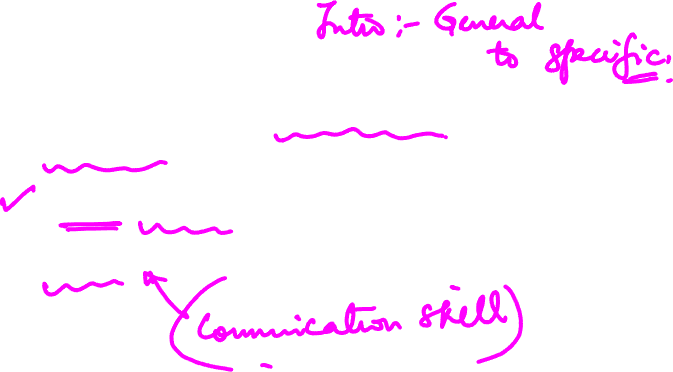 Intro :- General
to specific.
(Communication skill)